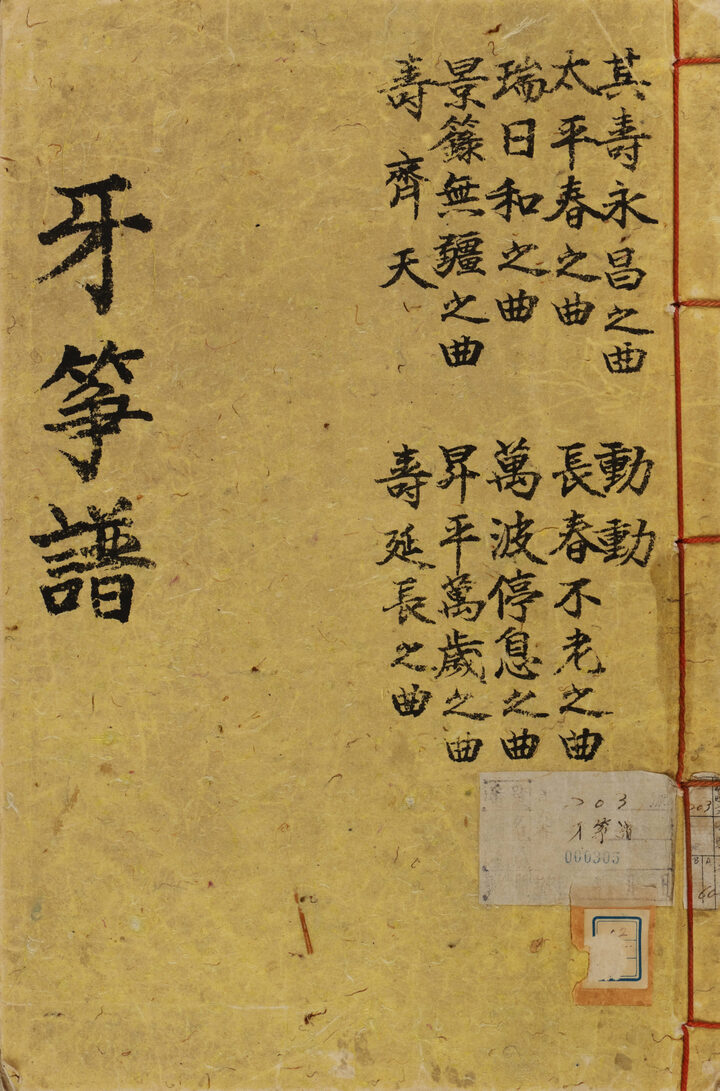 其壽永昌之曲
太平春之曲
瑞日和之曲
景籙無疆之曲
壽齊天
動動
長春不老之曲
萬波停息之曲
昇平萬歲之曲
壽延長之曲
牙箏譜
203
牙箏譜
000303